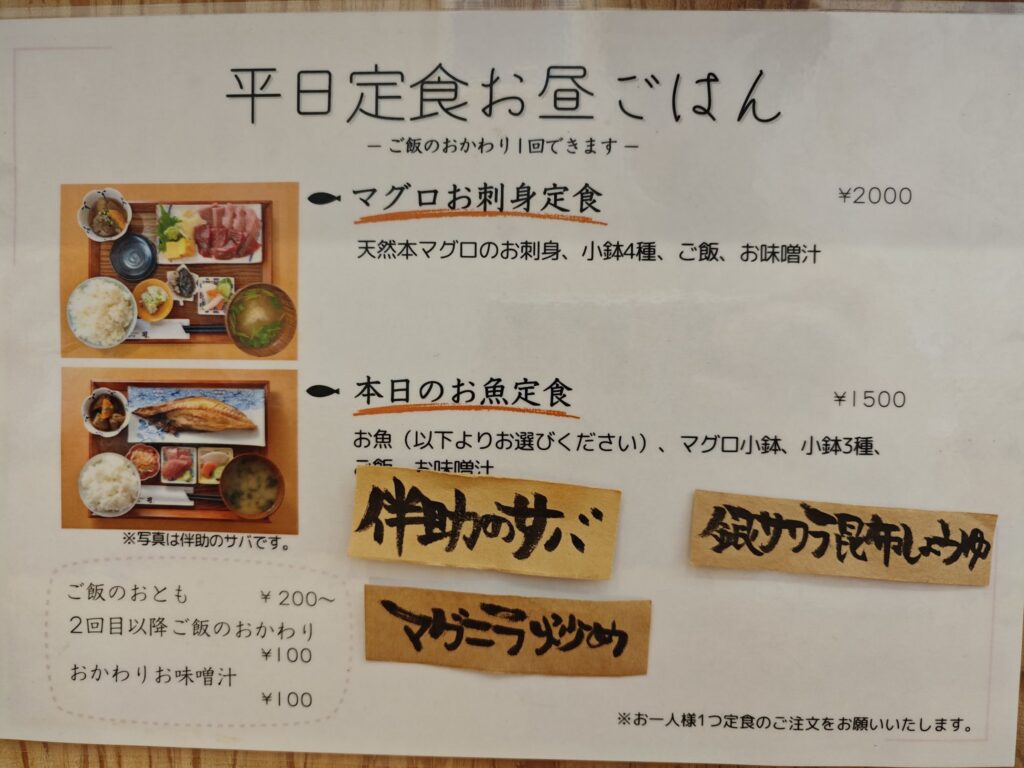 平日定食お昼ごはん
－ご飯のおかわり1回できます－
マグロお刺身定食 ¥2000
天然本マグロのお刺身、小鉢4種、ご飯、お味噌汁
本日のお魚定食 ¥1500
お魚（以下よりお選びください）、マグロ小鉢、小鉢3種、
ご飯、お味噌汁
伴助のサバ
銀サワラ昆布しょうゆ
マグニラ炒め
※写真は伴助のサバです。
ご飯のおとも ¥200～
2回目以降ご飯のおかわり
¥100
おかわりお味噌汁
¥100
※お一人様1つ定食のご注文をお願いいたします。